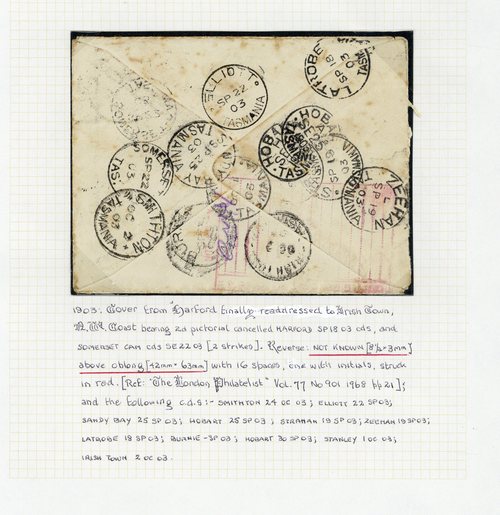 LATROBE
SP 18
03
TAS
ELLIOTT
SP 22
03
TASMANIA
TASMANIA
SOMERSET
SP 22
03
TAS.
HOBART
TAS
ZEEHAN
L
SP 19
03
TASMANIA
SMITHTON
OC 2
03
TASMANIA
BUR
IRISH TO
1903: Cover from Harford finally readdressed to Irish Town,
N.W. Coast bearing 2d pictorial cancelled HARFORD SP18 03 cds, and
SOMERSET CAM cds SE22 03 [2 strikes]. Reverse: NOT KNOWN [3½×3mm]
above oblong [42mm × 63mm] with 16 spaces, one with initials, struck
in red. [Ref: "The London Philatelist" Vol. 77 No 901 1968 pp 21];
and the following c.d.s:- SMITHTON 2 4 OC 03; ELLIOTT 22 SP03;
SANDY BAY 25 SP 03; HOBART 25 SP 03; STRAHAN 19 SP 03; ZEEHAN 19 SP03;
LATROBE 18 SP 03; BURNIE -SP 03; HOBART 30 SP 03; STANLEY 1 OC 03;
IRISH TOWN 2 OC 03.